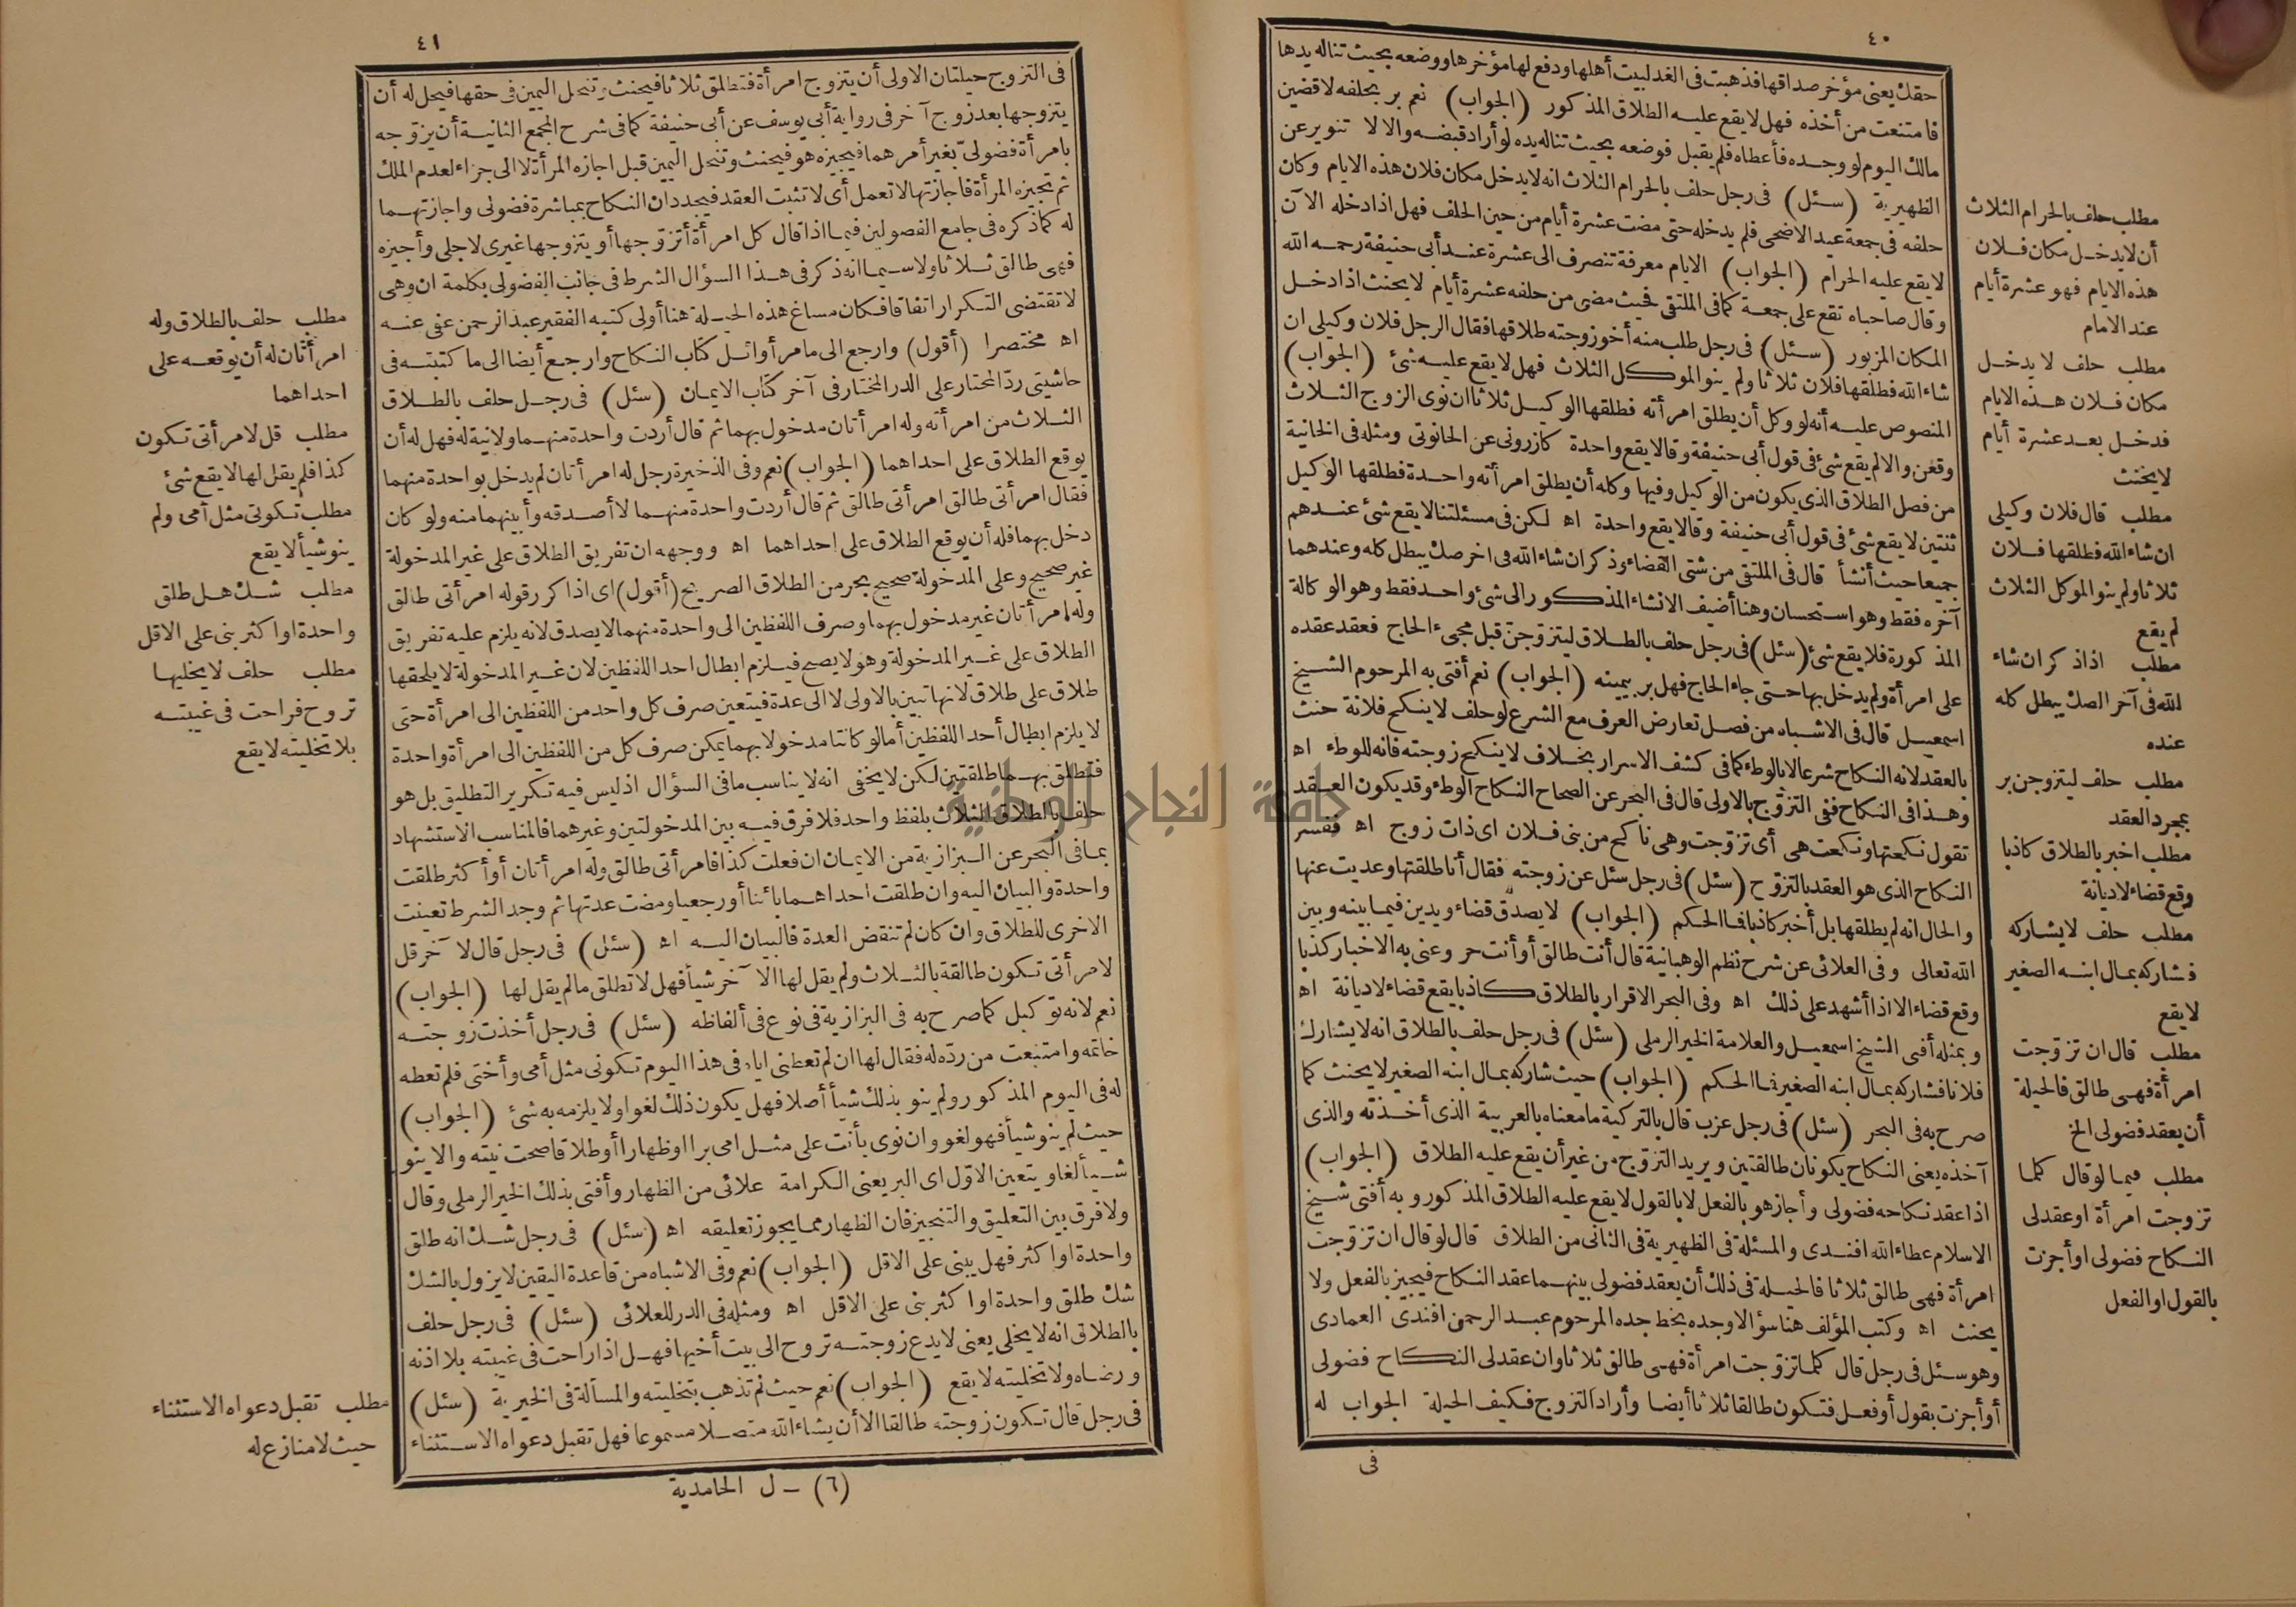 ٤٠
حقك يعنى مؤخر صداقها فذهبت فى الغد لبيت أهلها ودفع لها مؤخرها ووضعه بحيث تناله يدها
فامتنعت من أخذه فهل لا يقع عليه الطلاق المذكور (الجواب) نعم بر بحلفه لاقضين
مالك اليوم لو وجده فأعطاه فلم يقبل فوضعه بحيث تناله يده لو أراد قبضه والا لا تنوير عن
الظهيرية (سئل) فى رجل حلف بالحرام الثلاث انه لا يدخل مكان فلان هذه الايام وكان
حلفه فى جمعة عيد الاضحى فلم يدخله حتى مضت عشرة أيام من حين الحلف فهل اذا دخله الآن
لا يقع عليه الحرام (الجواب) الايام معرفة تنصرف الى عشرة عند أبى حنيفة رحمه الله
وقال صاحباه تقع على جمعة كما فى الملتقى فحيث مضى من حلفه عشرة أيام لا يحنث اذا دخل
المكان المزبور (سئل) فى رجل طلب منه أخو زوجته طلاقها فقال الرجل فلان وكيلى ان
شاء الله فطلقها فلان ثلاثا ولم ينو الموكل الثلاث فهل لا يقع عليه شئ (الجواب)
المنصوص عليه أنه لو وكل أن يطلق امرأته فطلقها الوكيل ثلاثا ان نوى الزوج الثلاث
وقعن والا لم يقع شئ فى قول أبى حنيفة وقالا يقع واحدة كازرونى عن الحانوتى ومثله فى الخانية
من فصل الطلاق الذى يكون من الوكيل وفيها وكله أن يطلق امرأته واحدة فطلقها الوكيل
ثنتين لا يقع شئ فى قول أبى حنيفة وقالا يقع واحدة اه لكن فى مسئلتنا لا يقع شئ عندهم
جميعا حيث أنشأ قال فى الملتقى من شتى القضاء وذكر ان شاء الله فى اخر صك يبطل كله وعندهما
آخره فقط وهو استحسان وهنا أضيف الانشاء المذكور الى شئ واحد فقط وهو الوكالة
المذكورة فلا يقع شئ (سئل) فى رجل حلف بالطلاق ليتزوجن قبل مجىء الحاج فعقد عقده
على امرأة ولم يدخل بها حتى جاء الحاج فهل بر بيمينه (الجواب) نعم أفتى به المرحوم الشيخ
اسمعيل قال فى الاشباه من فصل تعارض العرف مع الشرع لو حلف لا ينكح فلانة حنث
بالعقد لانه النكاح شرعا لا بالوطء كما فى كشف الاسرار بخلاف لا ينكح زوجته فانه للوطء اه
وهذا فى النكاح ففى التزوج بالاولى قال فى البحر عن الصحاح النكاح الوطء وقد يكون العقد
تقول نكحتها ونكحت هى أى تزوجت وهى ناكح من بنى فلان اى ذات زوج اه ففسر
النكاح الذى هو العقد بالتزوج (سئل) فى رجل سئل عن زوجته فقال أنا طلقتها وعديت عنها
والحال انه لم يطلقها بل أخبر كاذبا فما الحكم (الجواب) لا يصدق قضاء ويدين فيما بينه وبين
الله تعالى وفى العلائى عن شرح نظم الوهبانية قال أنت طالق أو أنت حر وعنى به الاخبار كذبا
وقع قضاء الا اذا أشهد على ذلك اه وفى البحر الاقرار بالطلاق كاذبا يقع قضاء لا ديانة اه
وبمثله أفتى الشيخ اسمعيل والعلامة الخير الرملى (سئل) فى رجل حلف بالطلاق انه لا يشارك
فلانا فشاركه بمال ابنه الصغير فما الحكم (الجواب) حيث شاركه بمال ابنه الصغير لا يحنث كما
صرح به فى البحر (سئل) فى رجل عزب قال بالتركية ما معناه بالعربية الذى أخذته والذى
آخذه يعنى النكاح يكونان طالقتين ويريد التزوج من غير أن يقع عليه الطلاق (الجواب)
اذا عقد نكاحه فضولى وأجاز هو بالفعل لا بالقول لا يقع عليه الطلاق المذكور وبه أفتى شيخ
الاسلام عطاء الله افندى والمسئلة فى الظهيرية فى الثانى من الطلاق قال لو قال ان تزوجت
امرأة فهى طالق ثلاثا فالحيلة فى ذلك أن يعقد فضولى بينهما عقد النكاح فيجيز بالفعل ولا
يحنث اه وكتب المؤلف هنا سؤالا وجده بخط جده المرحوم عبد الرحمن افندى العمادى
وهو سئل فى رجل قال كلما تزوجت امرأة فهى طالق ثلاثا وان عقد لى النكاح فضولى
أو أجزت بقول أو فعل فتكون طالقا ثلاثا أيضا وأراد التزوج فكيف الحيلة الجواب له
فى
مطلب حلف بالحرام الثلاث
أن لا يدخل مكان فلان
هذه الايام فهو عشرة أيام
عند الامام
مطلب حلف لا يدخل
مكان فلان هذه الايام
فدخل بعد عشرة أيام
لا يحنث
مطلب قال فلان وكيلى
ان شاء الله فطلقها فلان
ثلاثا ولم ينو الموكل الثلاث
لم يقع
مطلب اذا ذكر ان شاء
الله فى آخر الصك يبطل كله
عنده
مطلب حلف ليتزوجن بر
بمجرد العقد
مطلب اخبر بالطلاق كاذبا
وقع قضاء لا ديانة
مطلب حلف لا يشاركه
فشاركه بمال ابنه الصغير
لا يقع
مطلب قال ان تزوجت
امرأة فهى طالق فالحيلة
أن يعقد فضولى الخ
مطلب فيما لو قال كلما
تزوجت امرأة او عقد لى
النكاح فضولى او أجزت
بالقول او الفعل
٤١
فى التزوج حيلتان الاولى أن يتزوج امرأة فتطلق ثلاثا فيحنث وتنحل اليمين فى حقها فيحل له أن
يتزوجها بعد زوج آخر فى رواية أبى يوسف عن أبى حنيفة كما فى شرح المجمع الثانية أن يزوجه
بامرأة فضولى بغير أمرهما فيجيزه هو فيحنث وتنحل اليمين قبل اجازه المرأة لا الى جزاء لعدم الملك
ثم تجيزه المرأة فاجازتها لا تعمل أى لا تثبت العقد فيجددان النكاح بمباشرة فضولى واجازتهما
له كما ذكره فى جامع الفصولين فيما اذا قال كل امرأة أتزوجها أو يتزوجها غيرى لاجلى وأجيزه
فهى طالق ثلاثا ولا سيما انه ذكر فى هذا السؤال الشرط فى جانب الفضولى بكلمة ان وهى
لا تقتضى التكرار اتفاقا فكان مساغ هذه الحيلة هنا أولى كتبه الفقير عبد الرحمن عفى عنه
اه مختصرا (أقول) وارجع الى ما مر أوائل كتاب النكاح وارجع أيضا الى ما كتبته فى
حاشيتى رد المحتار على الدر المختار فى آخر كتاب الايمان (سئل) فى رجل حلف بالطلاق
الثلاث من امرأته وله امرأتان مدخول بهما ثم قال أردت واحدة منهما ولا نية له فهل له أن
يوقع الطلاق على احداهما (الجواب) نعم وفى الذخيرة رجل له امرأتان لم يدخل بواحدة منهما
فقال امرأتى طالق امرأتى طالق ثم قال أردت واحدة منهما لا أصدقه وأبينهما منه ولو كان
دخل بهما فله أن يوقع الطلاق على احداهما اه ووجهه ان تفريق الطلاق على غير المدخولة
غير صحيح وعلى المدخولة صحيح بحر من الطلاق الصريح (أقول) اى اذا كرر قوله امرأتى طالق
وله امرأتان غير مدخول بهما وصرف اللفظين الى واحدة منهما لا يصدق لانه يلزم عليه تفريق
الطلاق على غير المدخولة وهو لا يصح فيلزم ابطال احد اللفظين لان غير المدخولة لا يلحقها
طلاق على طلاق لانها تبين بالاولى لا الى عدة فيتعين صرف كل واحد من اللفظين الى امرأة حتى
لا يلزم ابطال أحد اللفظين أما لو كانتا مدخولا بهما يمكن صرف كل من اللفظين الى امرأة واحدة
فتطلق بهما طلقتين لكن لا يخفى انه لا يناسب ما فى السؤال اذ ليس فيه تكرير التطليق بل هو
حلف بالطلاق الثلاث بلفظ واحد فلا فرق فيه بين المدخولتين وغيرهما فالمناسب الاستشهاد
بما فى البحر عن البزازية من الايمان ان فعلت كذا فامرأتى طالق وله امرأتان أو أكثر طلقت
واحدة والبيان اليه وان طلقت احداهما بائنا أو رجعيا ومضت عدتها ثم وجد الشرط تعينت
الاخرى للطلاق وان كان لم تنقض العدة فالبيان اليه اه (سئل) فى رجل قال لآخر قل
لامرأتى تكون طالقة بالثلاث ولم يقل لها الآخر شيأ فهل لا تطلق ما لم يقل لها (الجواب)
نعم لانه توكيل كما صرح به فى البزازية فى نوع فى ألفاظه (سئل) فى رجل أخذت زوجته
خاتمه وامتنعت من رده له فقال لها ان لم تعطنى اياه فى هذا اليوم تكونى مثل أمى وأختى فلم تعطه
له فى اليوم المذكور ولم ينو بذلك شيأ أصلا فهل يكون ذلك لغوا ولا يلزمه به شئ (الجواب)
حيث لم ينو شيأ فهو لغو وان نوى بأنت على مثل امى برا او ظهارا أو طلاقا صحت نيته والا ينو
شيأ لغا ويتعين الاول اى البر يعنى الكرامة علائى من الظهار وأفتى بذلك الخير الرملى وقال
ولا فرق بين التعليق والتنجيز فان الظهار مما يجوز تعليقه اه (سئل) فى رجل شك انه طلق
واحدة او اكثر فهل يبنى على الاقل (الجواب) نعم وفى الاشباه من قاعدة اليقين لا يزول بالشك
شك طلق واحدة او اكثر بنى على الاقل اه ومثله فى الدر للعلائى (سئل) فى رجل حلف
بالطلاق انه لا يخلى يعنى لا يدع زوجته تروح الى بيت أخيها فهل اذا راحت فى غيبته بلا اذنه
ورضاه ولا تخليته لا يقع (الجواب) نعم حيث لم تذهب بتخليته والمسألة فى الخيرية (سئل)
فى رجل قال تكون زوجته طالقا الا أن يشاء الله متصلا مسموعا فهل تقبل دعواه الاستثناء
مطلب حلف بالطلاق وله
امرأتان له أن يوقعه على
احداهما
مطلب قل لامرأتى تكون
كذا فلم يقل لها لا يقع شئ
مطلب تكونى مثل أمى ولم
ينو شيأ لا يقع
مطلب شك هل طلق
واحدة او اكثر بنى على الاقل
مطلب حلف لا يخليها
تروح فراحت فى غيبته
بلا تخليته لا يقع
مطلب تقبل دعواه الاستثناء
حيث لا منازع له
(٦) - ل الحامدية
جامعة النجاح الوطنية